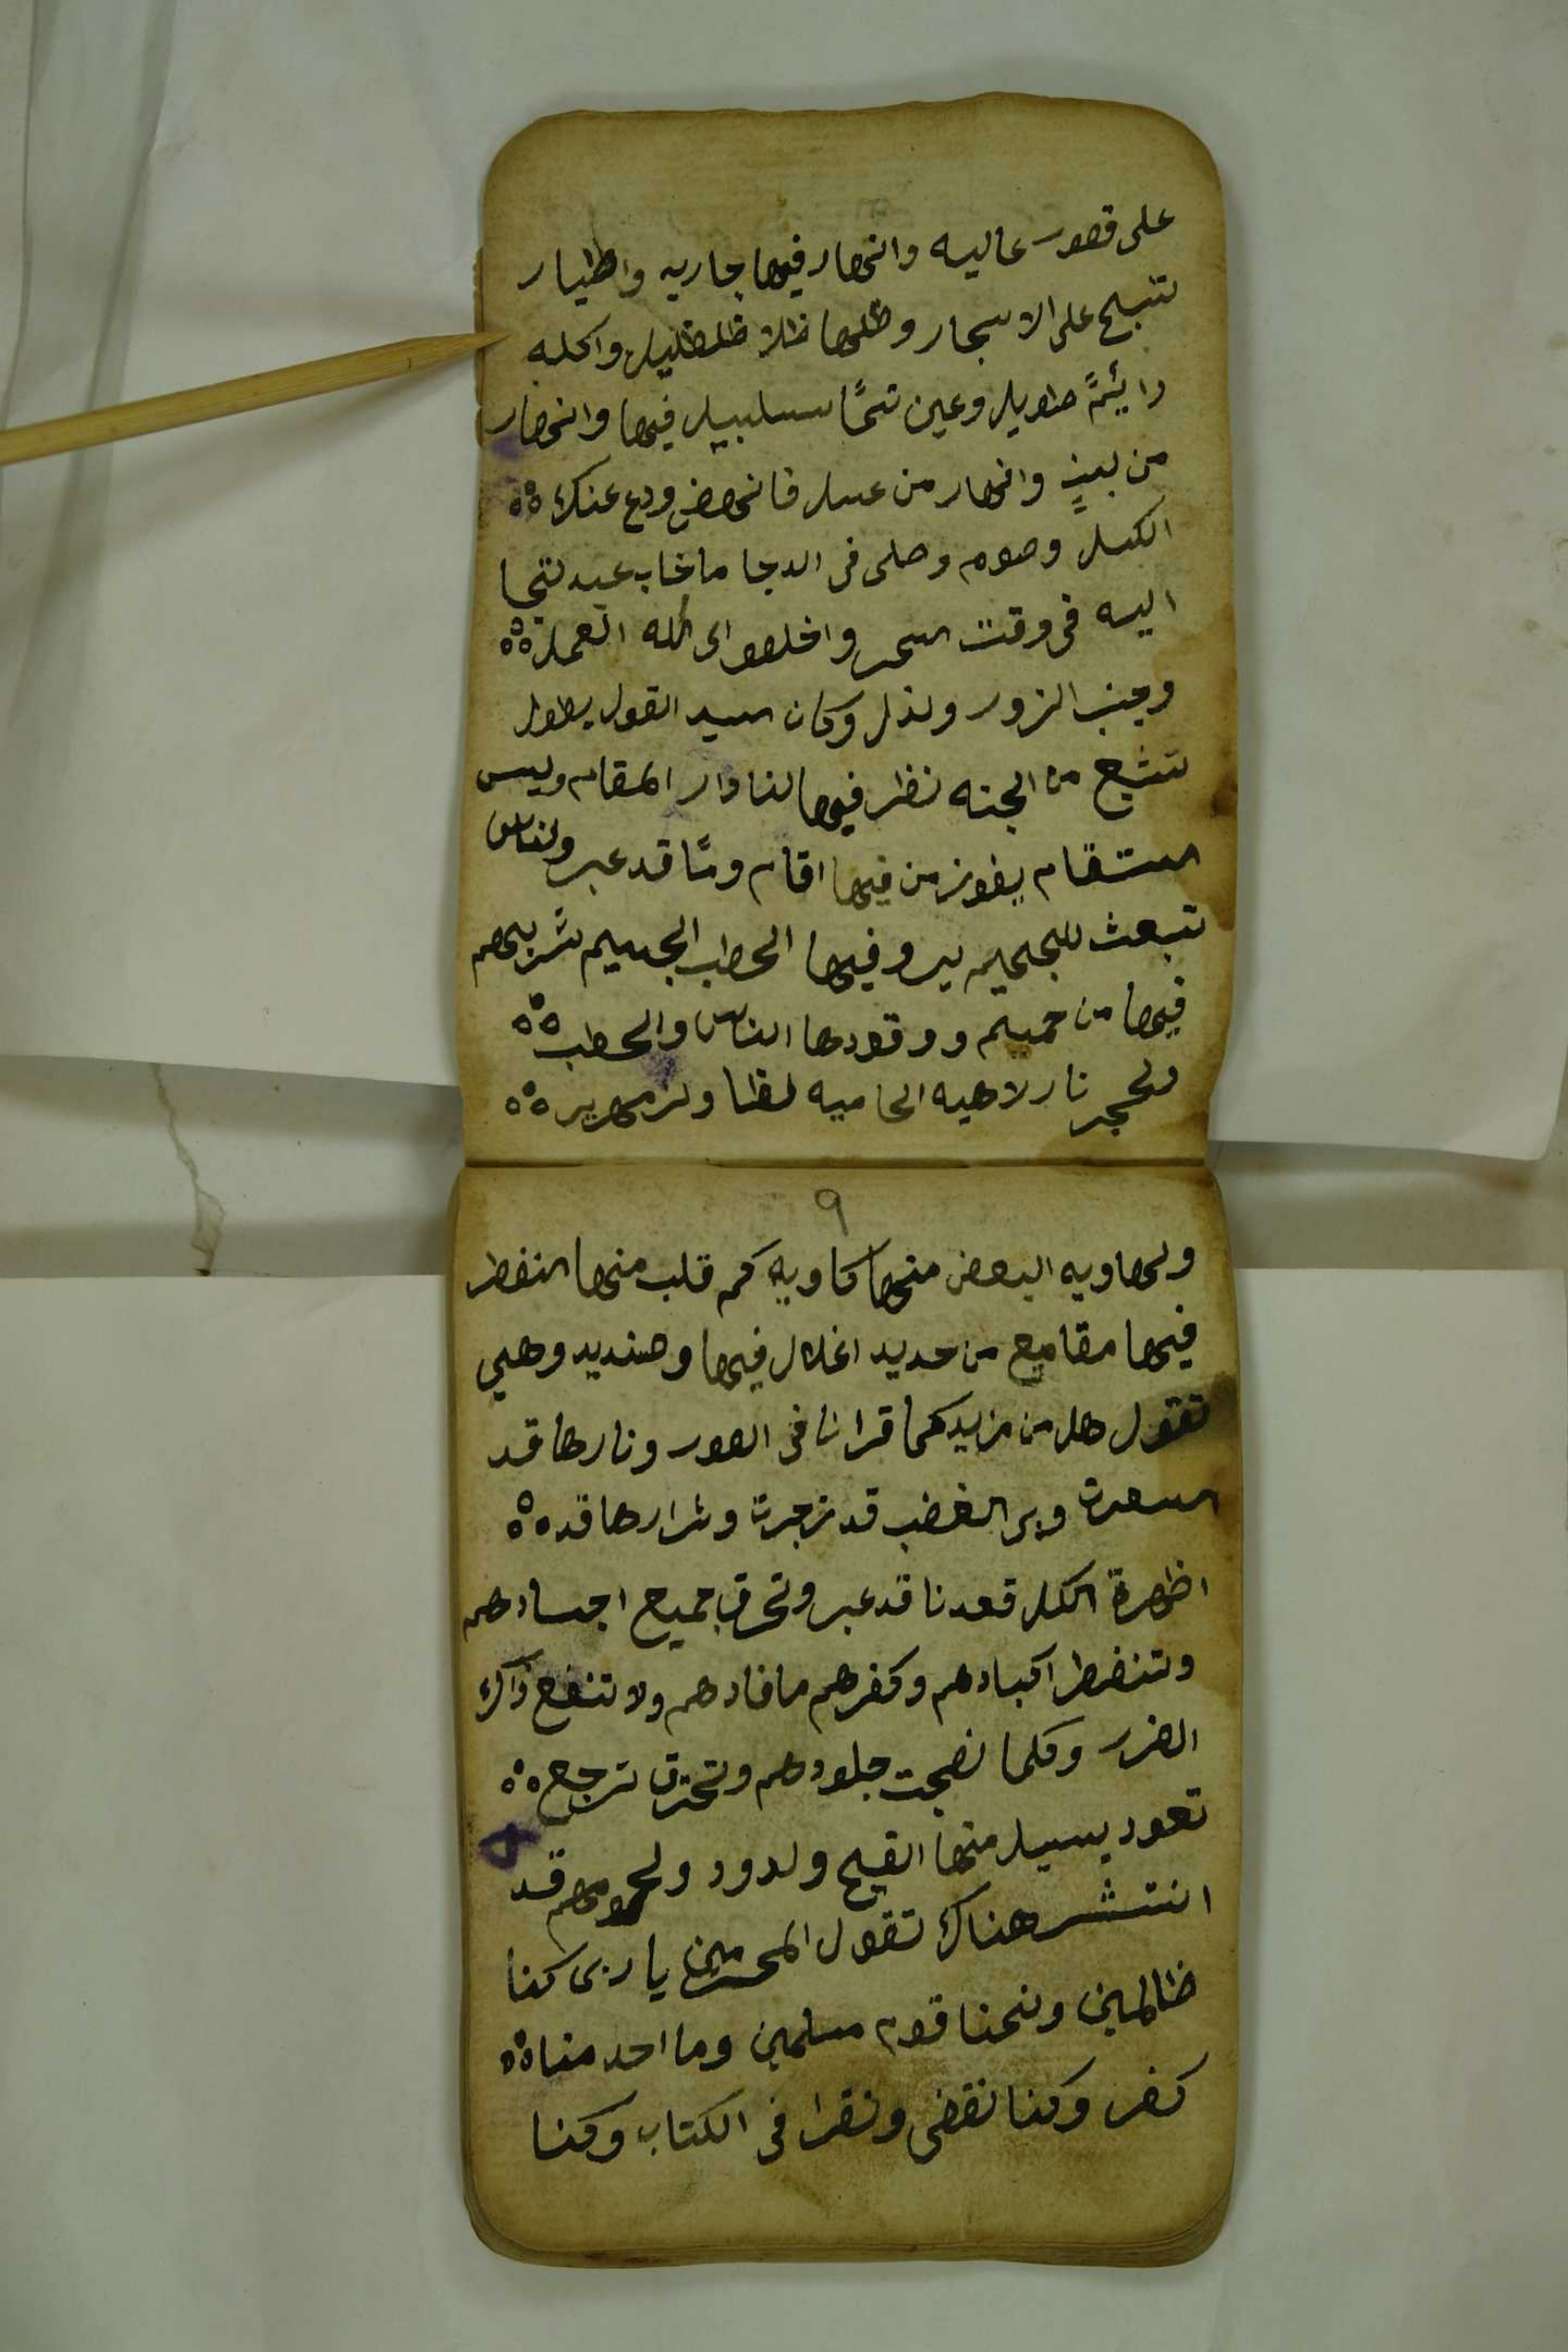 على قصور عاليه وانهار فيها جاريه واطيار
تسبح على الاسجار وظلها ظلا ظلظليل واكله
دايئمً طويل وعين تسمًا سلسبيل فيها وانهار
من لبنٍ وانهار من عسل فانهض ودع عنك ۵۵
الكسل وصوم وصلى فى الدجا ما خاب عبد لتجا
اليه فى وقت السحر واخلصوا لى لله العمل ۵۵
وجنب الزور ولذل وكان السيد القول يطول
لتشبع من الجنه نظر فيها لنا دار المقام وليس
السقام يفوز من فيها اقام ومًا قد عبر ولناس
تبعث للجحيم بير وفيها الحطب الجسيم شربهم
فيها من حميم ووقودها الناس والحطب ۵۵
ولحجر نار لاهيه الحاميه لظا ولزمهرير ۵۵
٩
ولهاويه البعض منها كاويه كم قلب منها انفطر
فيها مقامع من حديد اغلال فيها وصنديد وهيى
تقول هل من مزيد كما قرانا فى السور ونارها قد
اسعرت وبر الغضب قد زجرت وشرارها قد ۵۵
اظهرة الكل قعدنا قد عبر وتحرق جميع اجسادهم
وتنفطر اكبادهم وكفرهم ما فادهم ولا تنفع ذاك
الضرر وكلما نضجت جلودهم وتحترق ترجع ۵۵
تعود يسيل منها القيح ولدود ولحومهم قد
انتشر هناك تقول المجرمين يا ربى كنا
ظالمين ونحنا قوم مسلمين وما احد منا ۵۵
كفر وكنا نقضى ونقرا فى الكتاب وكنا